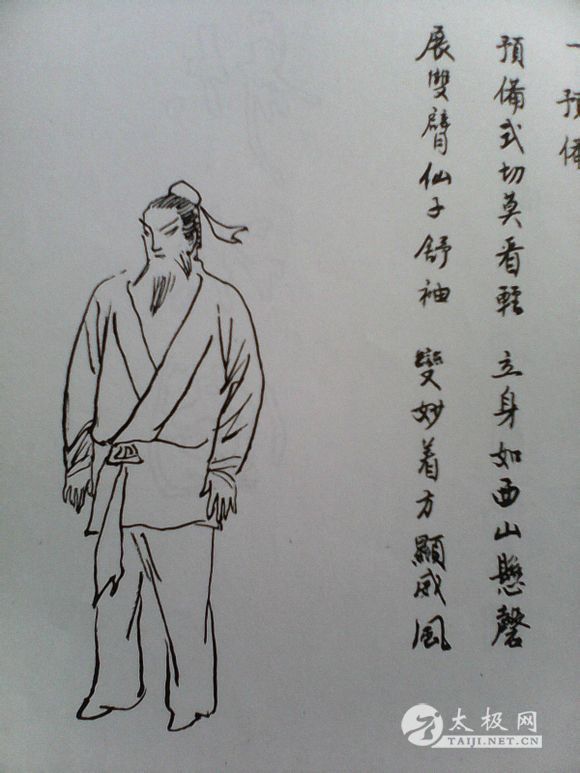 一 預備
預備式切莫看輕 立身如西山懸磬
展雙臂仙子舒袖 變妙着方顯威風
太极网
TAIJI.NET.CN